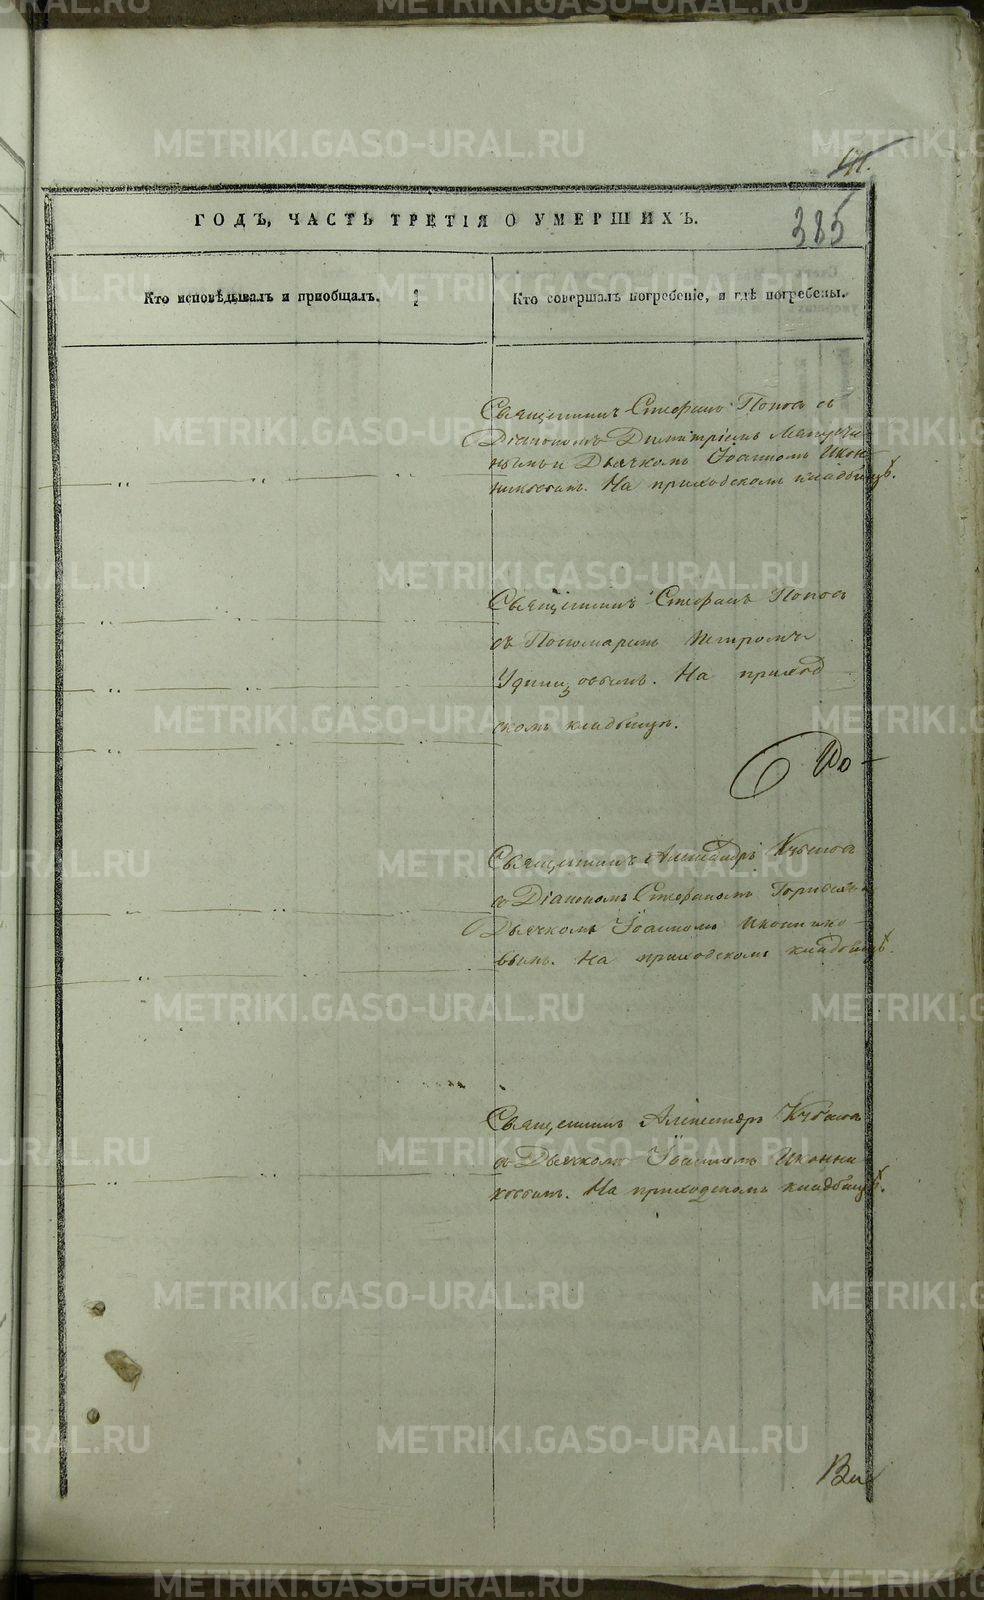 METRIKI.GASO-URAL.RU
41.
ГОДЪ, ЧАСТЬ ТРЕТІЯ О УМЕРШИХЪ.
385
Кто исповѣдывалъ и приобщалъ.
Кто совершалъ погребеніе, и гдѣ погребены.
Священникъ Стефанъ Поповъ съ
Діакономъ Димитріемъ
и Дьячкомъ Іоанномъ Икон
никовымъ. На приходскомъ кладбищѣ.
Священникъ Стефанъ Поповъ
съ Пономаремъ Петромъ
Удинцовымъ. На приход
скомъ кладбищѣ.
Священникъ Александръ
съ Діакономъ Стефаномъ
Дьячкомъ Іоанномъ Иконнико
вымъ. На приходскомъ кладбищѣ.
Священникъ Александръ
съ Дьячкомъ Іоанномъ Иконни
ковымъ. На приходскомъ кладбищѣ.